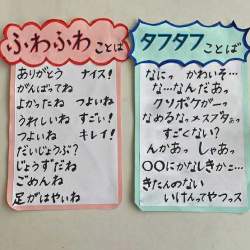 ふわふわことば
ありがとう ナイス!
がんばってね
よかったね つよいね
うれしいね すごい!
つよいね キレイ!
だいじょうぶ?
じょうずだね
ごめんね
足がはやいね
タフタフことば
なにっ かわいそ…
な…なんだあっ
クソボケがーっ
なめるなっメスブタぁっ
すごくない?
んかあっ しゃあっ
〇〇にかなしきかこ…
きたんのない
いけんってやつっス